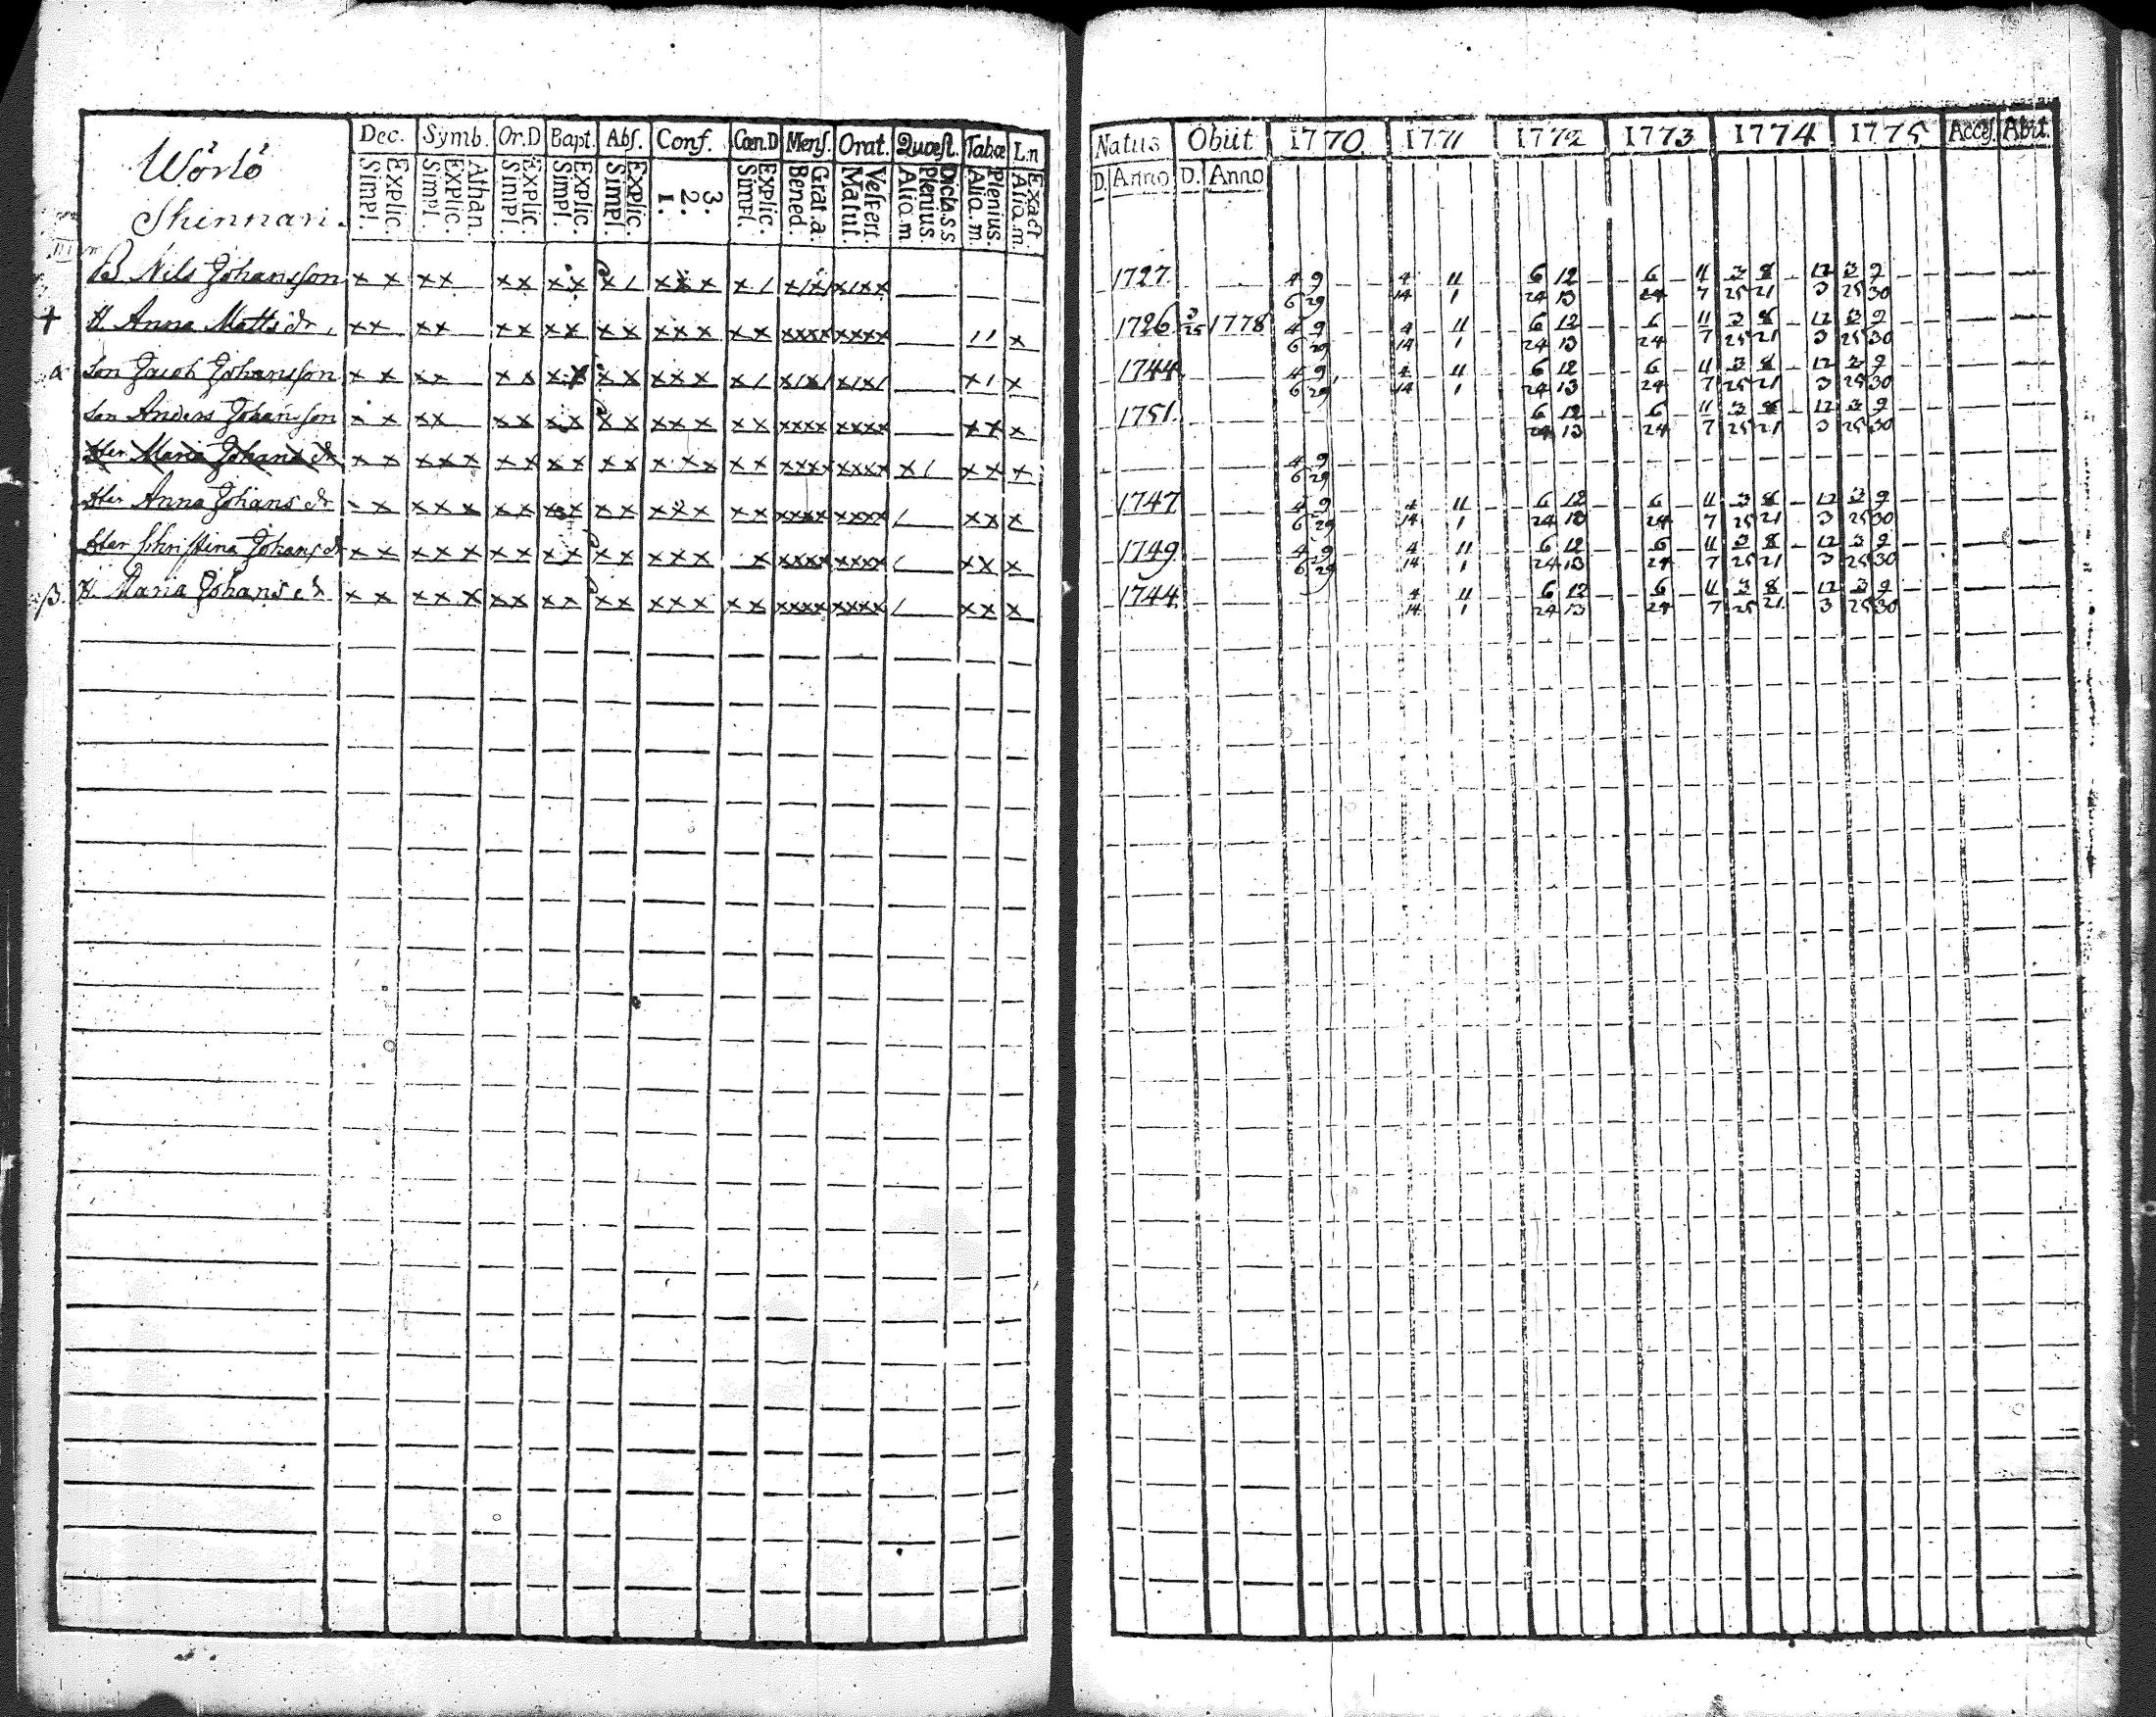 Wörlö
Skinnari.
Dec. Symb. Or.D Bapt. Abs. Conf. Cœn.D Mens. Orat. Quæst. Tabæ L.n
Simpl. Explic. Simpl. Explic. Athan. Simpl. Explic. Simpl. Explic. Simpl. Explic. 1. 2. 3. Simpl. Explic. Bened. Grat. a. Matut. Vespert. Alio. m Plenius. Dicta. s s Alia. m. Plenius. Alia. m. Exact.
Natus Obiit 1770 1771 1772 1773 1774 1775 Acces. Abiit.
D. Anno D. Anno
B Nils Johansson 1727. 4 9 4 11 6 12 6 11 3 8 12 3 9
6 29 14 1 24 13 24 7 25 21 3 25 30
H Anna Matts dr. 1726 3 25 1778 4 9 4 11 6 12 6 11 3 8 12 3 9
6 29 14 1 24 13 24 7 25 21 3 25 30
a Son Jacob Johansson 1744 4 9 4 11 6 12 6 11 3 8 12 3 9
6 29 14 1 24 13 24 7 25 21 3 25 30
Son Anders Johansson 1751. 6 12 6 11 3 8 12 3 9
24 13 24 7 25 21 3 25 30
Maria Johans dr 4 9
6 29
Anna Johans dr 1747 4 9 4 11 6 12 6 11 3 8 12 3 9
6 29 14 1 24 13 24 7 25 21 3 25 30
Christina Johans dr 1749 4 9 4 11 6 12 6 11 3 8 12 3 9
6 29 14 1 24 13 24 7 25 21 3 25 30
β. H Maria Johans dr 1744 4 11 6 12 6 11 3 8 12 3 9
14 1 24 13 24 7 25 21 3 25 30